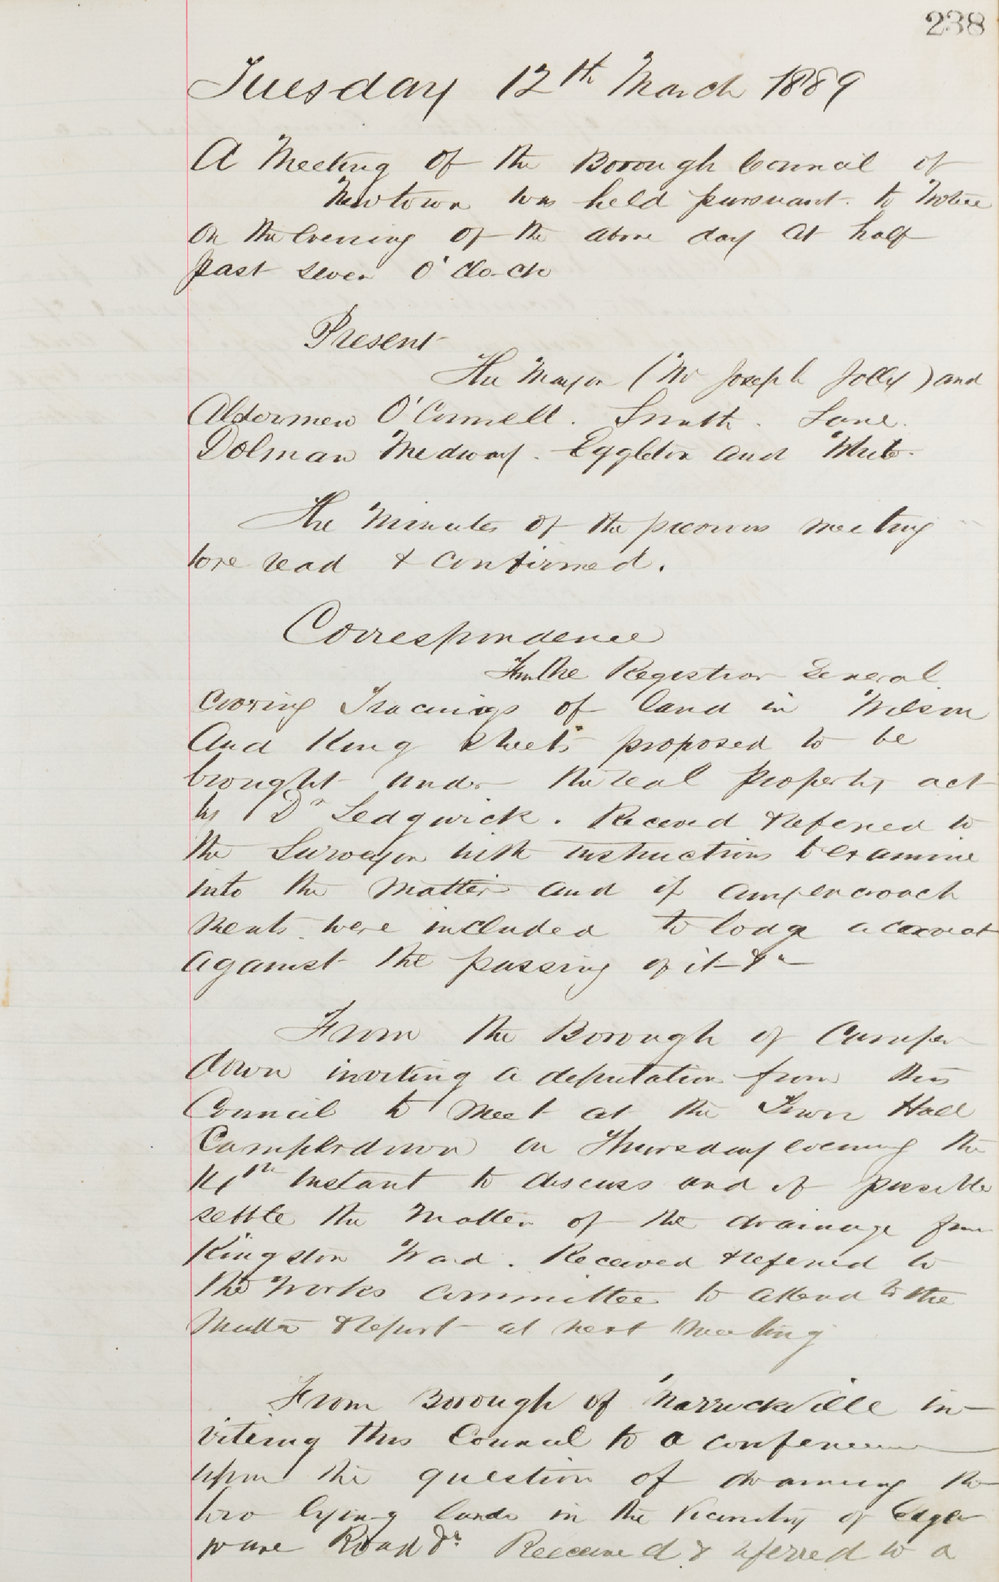 238
Tuesday 12th March 1889
A Meeting of the Borough Council of
Newtown was held pursuant to Notice
on the Evening of the above day at half
past seven O'Clock
Present
The Mayor (Mr Joseph Jolly) and
Aldermen O'Connell. Smith. Lane.
Dolman Medway. Eggleton and White.
The Minutes of the previous meeting
were read & confirmed.
Correspondence
From the Registrar General
covering Tracings of land in Wilson
And King Streets proposed to be
brought under the real Property act
by Dr Sedgwick. Received & referred to
the Surveyor with instructions to examine
into the matter and if any encroach
ments were included to lodge a caveat
against the passing of it &c
From the Borough of Camper
down inviting a deputation from this
Council to meet at the Town Hall
Camperdown on Thursday evening the
14th Instant to discuss and if possible
settle the matter of the drainage from
Kingston Ward. Received & referred to
the Works Committee to attend to the
Matter & Report at next meeting
From Borough of Marrickville in-
viting this Council to a conference
upon the question of draining the
low lying lands in the vicinity of Edge
ware Road &c Received & referred to a